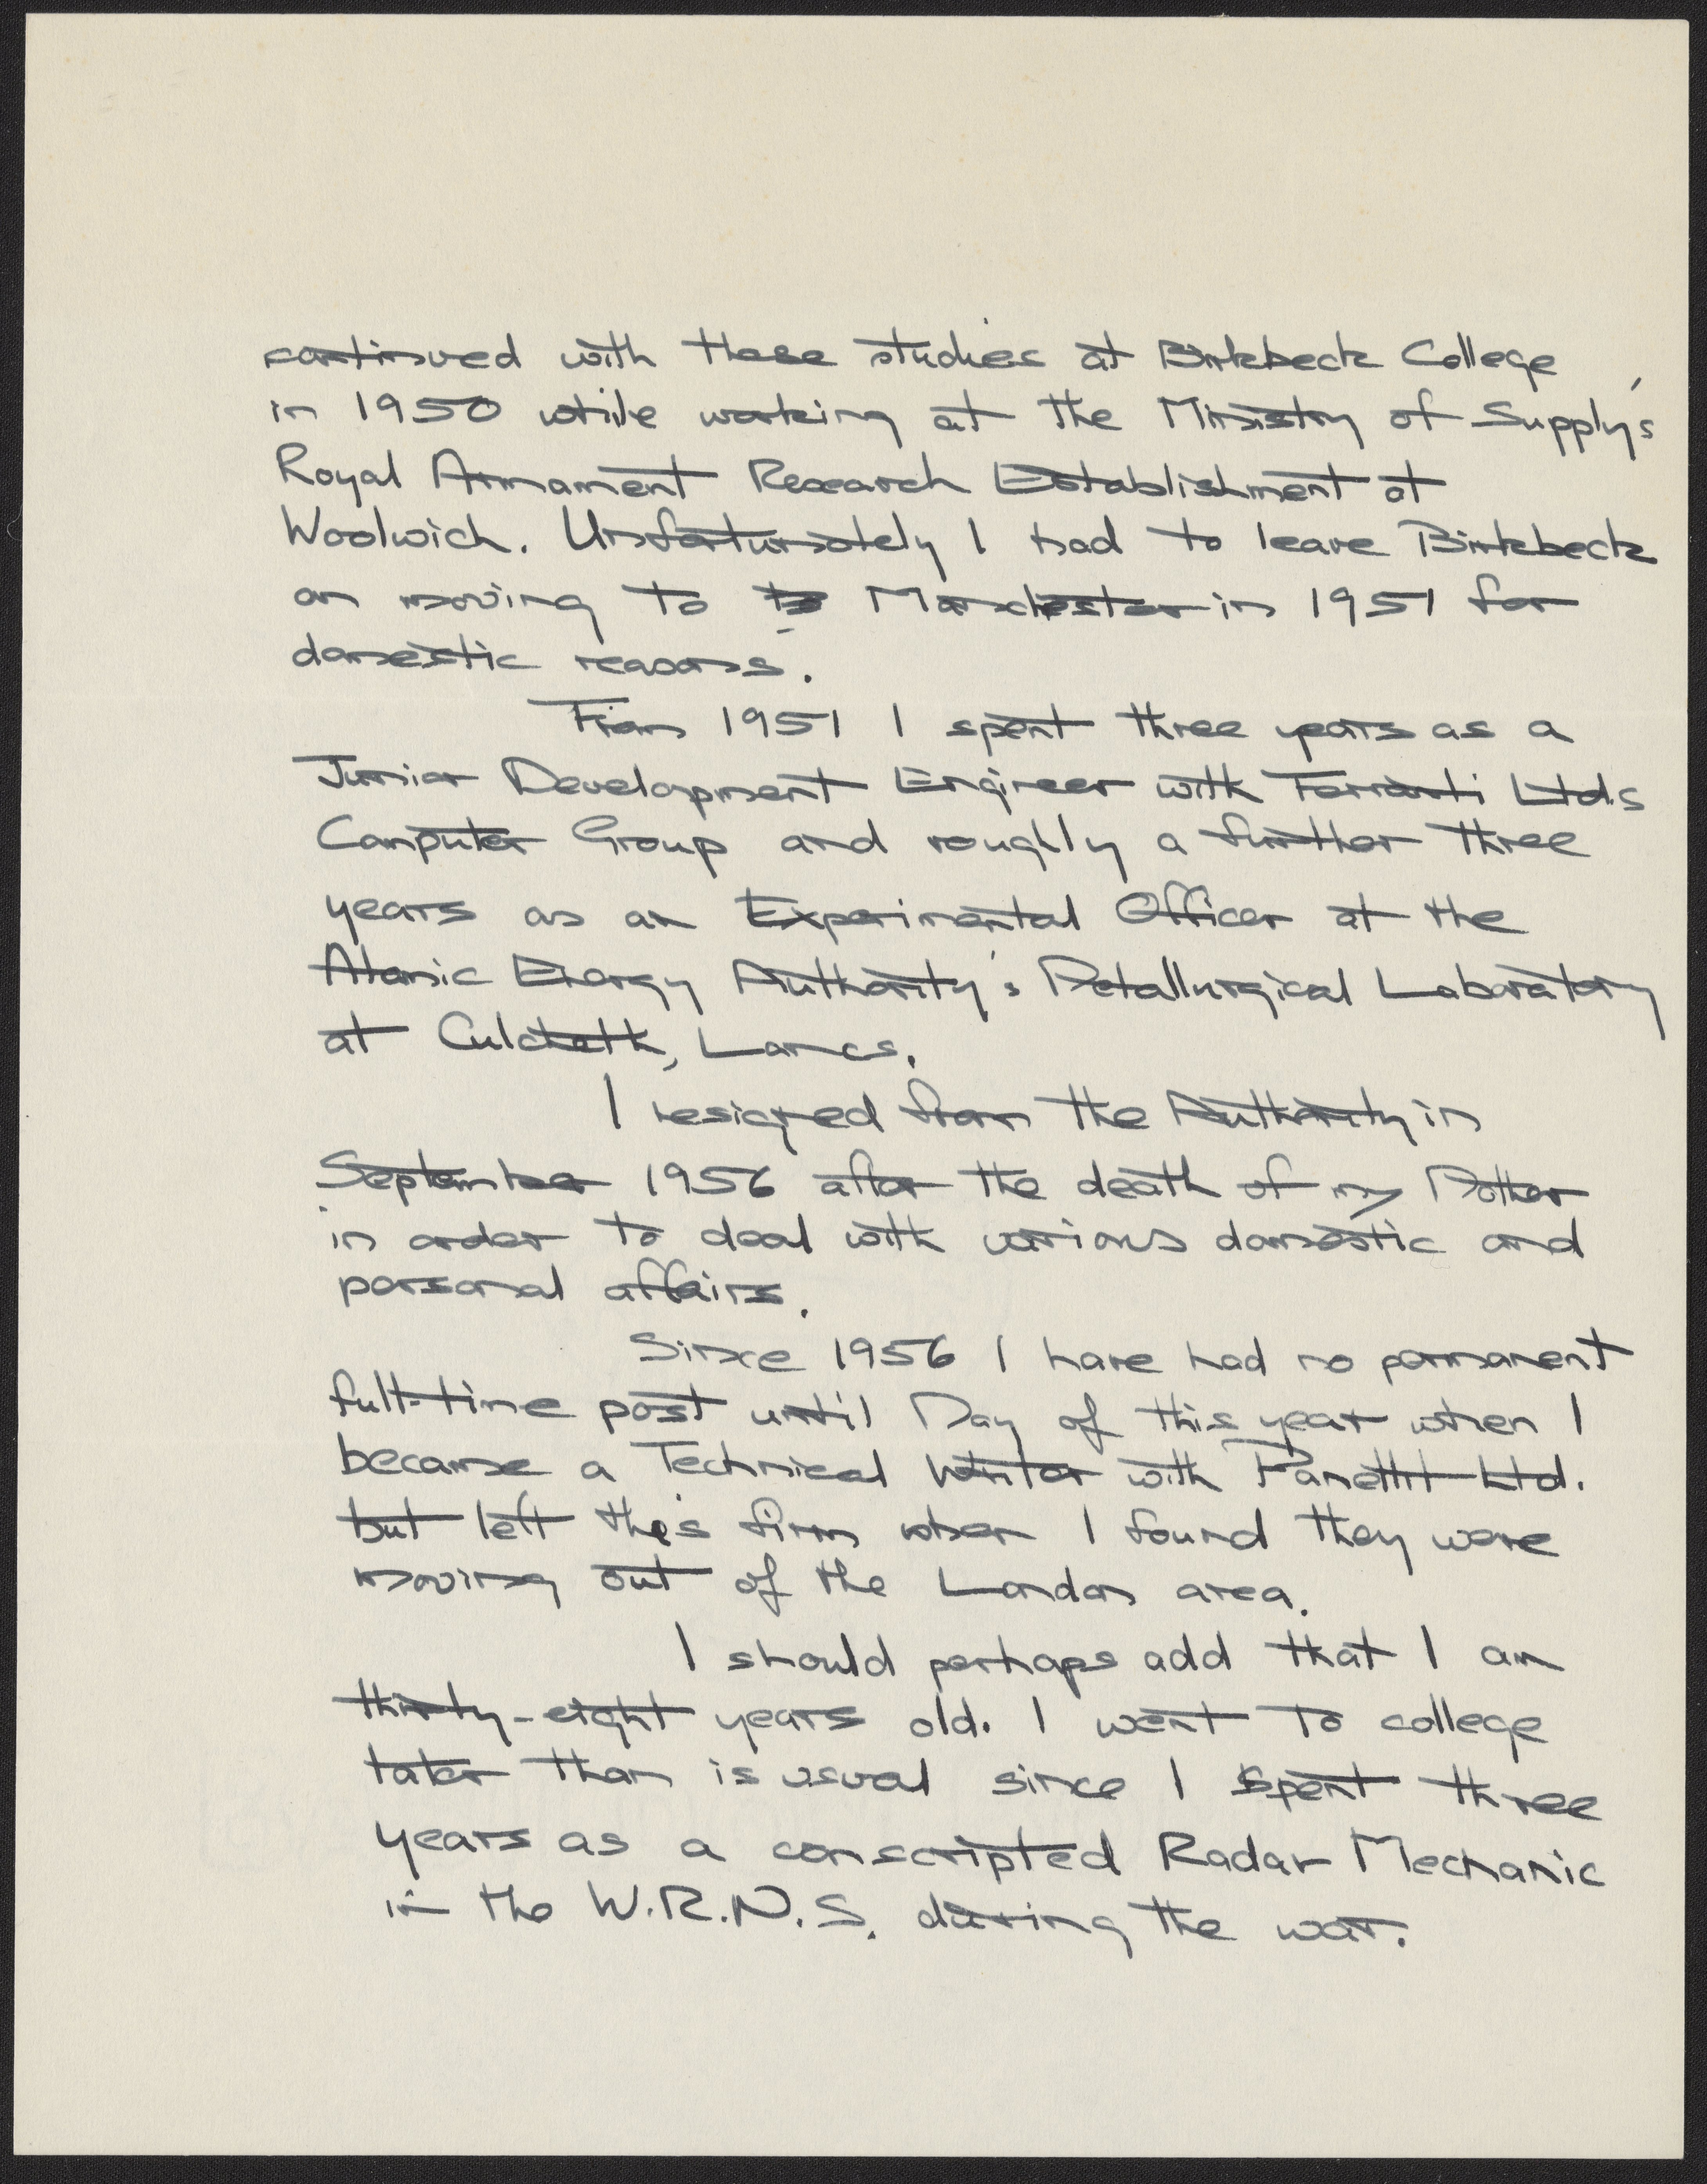 continued with these studies at Birkbeck College
in 1950 while working at the Ministry of Supply's
Royal Armament Research Establishment at
Woolwich. Unfortunately I had to leave Birkbeck
on moving to Manchester in 1951 for
domestic reasons.
From 1951 I spent three years as a
Junior Development Engineer with Ferranti Ltd.s
Computer Group and roughly a further three
years as an Experimental Officer at the
Atomic Energy Authority's Metallurgical Laboratory
at Culcheth, Lancs.
I resigned from the Authority in
September 1956 after the death of my Mother
in order to deal with various domestic and
personal affairs.
Since 1956 I have had no permanent
full-time post until May of this year when I
became a Technical Writer with Panellit Ltd.
but left this firm when I found they were
moving out of the London area.
I should perhaps add that I am
thirty-eight years old. I went to college
later than is usual since I spent three
years as a conscripted Radar Mechanic
in the W.R.N.S. during the war.